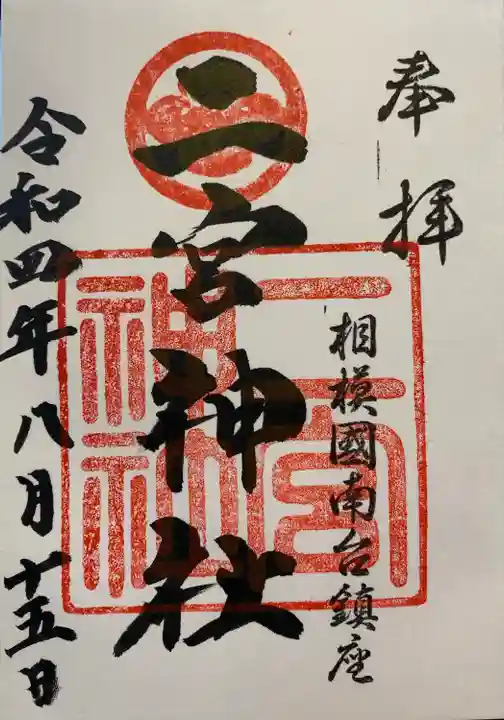 奉拝
相模國南台鎮座
二宮神社
二宮神社
令和四年八月十五日